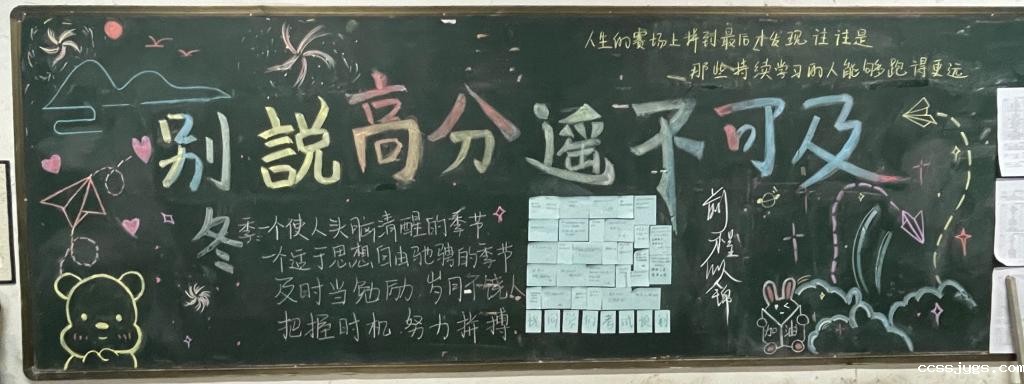 人生的赛场上拼到最后才发现往往是
那些持续学习的人能够跑得更远
别説高分遥不可及
冬季一个使人头脑清醒的季节
一个适于思想自由驰骋的季节
及时当勉励 岁月不饶人
把握时机 努力拼搏
前程似锦
加油
ccssjygs.com